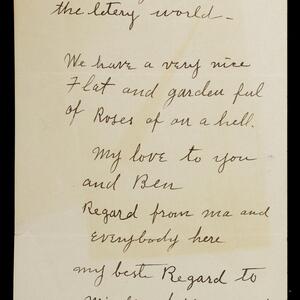 the letery world_
We have a very nice
Flat and garden ful
of Roses of on a hell.
My love to you
and Ben
Regard from ma and
everybody here
my best Regard to